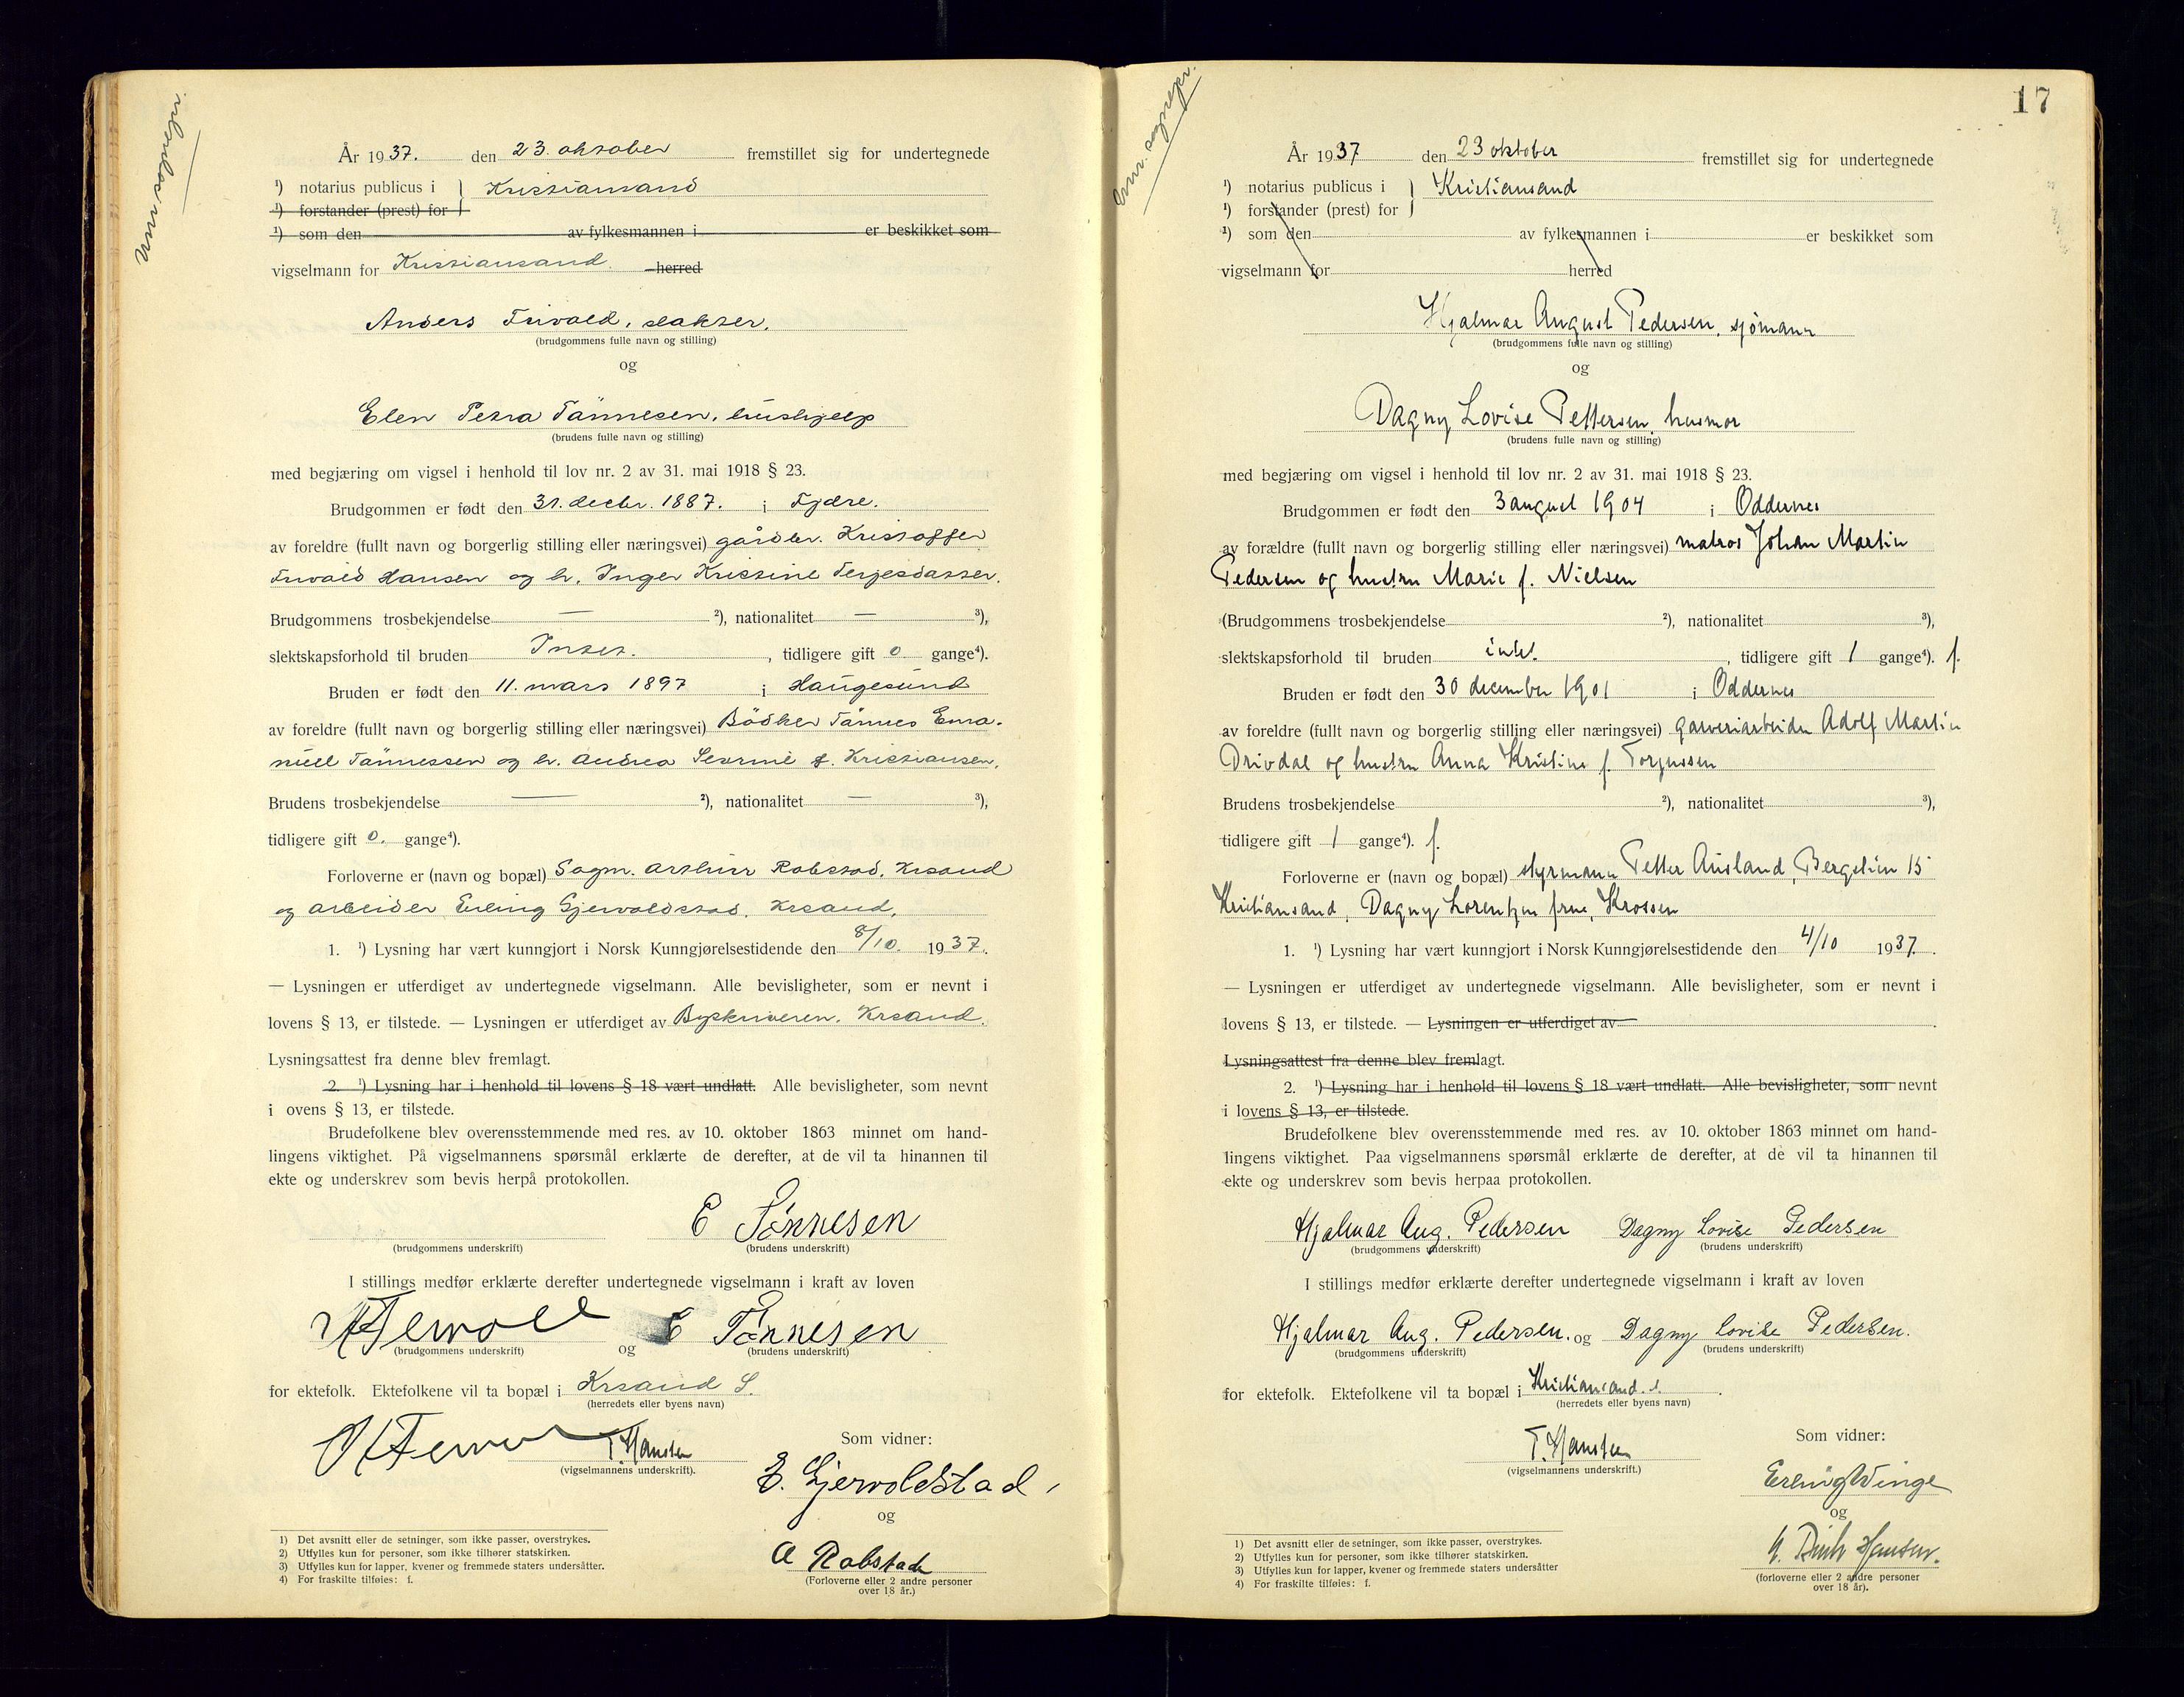 År 1937. den 23. oktober fremstillet sig for undertegnede
¹) notarius publicus i } Kristiansand
¹) forstander (prest) for
¹) som den av fylkesmannen i er beskikket som
vigselmann for Kristiansand. herred
Anders Trivold, slakter.
(brudgommens fulle navn og stilling)
og
Elen Petra Tønnesen, hushjelp
(brudens fulle navn og stilling)
med begjæring om vigsel i henhold til lov nr. 2 av 31. mai 1918 § 23.
Brudgommen er født den 31. decbr. 1887. i Fjære.
av foreldre (fullt navn og borgerlig stilling eller næringsvei) gårdbr. Kristoffer
Hansen og h. Inger Kristine Terjesdatter.
Brudgommens trosbekjendelse — ²), nationalitet — ³),
slektskapsforhold til bruden Intet. , tidligere gift 0 gange⁴).
Bruden er født den 11. mars 1897 i Haugesund
av foreldre (fullt navn og borgerlig stilling eller næringsvei) Bødker Tønnes Ema-
nuel Tønnessen og h. Andrea Severine f. Kristiansen.
Brudens trosbekjendelse — ²), nationalitet — ³),
tidligere gift 0. gange⁴).
Forloverne er (navn og bopæl) Sagm. Arthur Robstad, Krsand
og arbeider Erling Gjervoldstad, Krsand.
1. ¹) Lysning har vært kunngjort i Norsk Kunngjørelsestidende den 8/10. 1937.
— Lysningen er utferdiget av undertegnede vigselmann. Alle bevisligheter, som er nevnt i
lovens § 13, er tilstede. — Lysningen er utferdiget av Byskriveren. Krsand.
Lysningsattest fra denne blev fremlagt.
2. ¹) Lysning har i henhold til lovens § 18 vært undlatt. Alle bevisligheter, som nevnt
i ovens § 13, er tilstede.
Brudefolkene blev overensstemmende med res. av 10. oktober 1863 minnet om hand-
lingens viktighet. På vigselmannens spørsmål erklærte de derefter, at de vil ta hinannen til
ekte og underskrev som bevis herpå protokollen.
E Tønnesen
(brudgommens underskrift) (brudens underskrift)
I stillings medfør erklærte derefter undertegnede vigselmann i kraft av loven
E Tønnesen
(brudgommens underskrift) og (brudens underskrift)
for ektefolk. Ektefolkene vil ta bopæl i Krsand S.
(herredets eller byens navn)
T. Hansten
(vigselmannens underskrift).
Som vidner:
E. Gjervoldstad
og
A Robstad
(Forloverne eller 2 andre personer
over 18 år.)
1) Det avsnitt eller de setninger, som ikke passer, overstrykes.
2) Utfylles kun for personer, som ikke tilhører statskirken.
3) Utfylles kun for lapper, kvener og fremmede staters undersåtter.
4) For fraskilte tilføies: f.
17
År 1937 den 23 oktober fremstillet sig for undertegnede
¹) notarius publicus i } Kristiansand
¹) forstander (prest) for
¹) som den av fylkesmannen i er beskikket som
vigselmann for herred
Hjalmar August Pedersen, sjømann
(brudgommens fulle navn og stilling)
og
Dagny Lovise Pettersen, husmor
(brudens fulle navn og stilling)
med begjæring om vigsel i henhold til lov nr. 2 av 31. mai 1918 § 23.
Brudgommen er født den 3 august 1904 i Oddernes
av forældre (fullt navn og borgerlig stilling eller næringsvei) matros Johan Martin
Pedersen og hustru Marie f. Nielsen
(Brudgommens trosbekjendelse ²), nationalitet ³),
slektskapsforhold til bruden intet. , tidligere gift 1 gange⁴). f.
Bruden er født den 30 december 1901 i Oddernes
av foreldre (fullt navn og borgerlig stilling eller næringsvei) garveriarbeider Adolf Martin
Drivdal og hustru Anna Kristine f. Torgussen
Brudens trosbekjendelse ²), nationalitet ³),
tidligere gift 1 gange⁴). f.
Forloverne er (navn og bopæl) styrmann Petter Ausland, Bergelien 15
Kristiansand, Dagny Lorentzen frue, Krossen
1. ¹) Lysning har vært kunngjort i Norsk Kunngjørelsestidende den 4/10 1937.
— Lysningen er utferdiget av undertegnede vigselmann. Alle bevisligheter, som er nevnt i
lovens § 13, er tilstede. — Lysningen er utferdiget av
Lysningsattest fra denne blev fremlagt.
2. ¹) Lysning har i henhold til lovens § 18 vært undlatt. Alle bevisligheter, som nevnt
i lovens § 13, er tilstede.
Brudefolkene blev overensstemmende med res. av 10. oktober 1863 minnet om hand-
lingens viktighet. Paa vigselmannens spørsmål erklærte de derefter, at de vil ta hinannen til
ekte og underskrev som bevis herpaa protokollen.
Hjalmar Aug. Pedersen Dagny Lovise Pedersen
(brudgommens underskrift) (brudens underskrift)
I stillings medfør erklærte derefter undertegnede vigselmann i kraft av loven
Hjalmar Aug. Pedersen. og Dagny Lovise Pedersen.
(brudgommens underskrift) (brudens underskrift)
for ektefolk. Ektefolkene vil ta bopæl i Kristiansand. S.
(herredets eller byens navn)
T. Hansten
(vigselmannens underskrift.)
Som vidner:
Erling Winge
og
Hansen.
(forloverne eller 2 andre personer
over 18 år).
1) Det avsnitt eller de setninger, som ikke passer, overstrykes.
2) Utfylles kun for personer, som ikke tilhører statskirken.
3) Utfylles kun for lapper, kvener og fremmede staters undersåtter
4) For fraskilte tilføies: f.